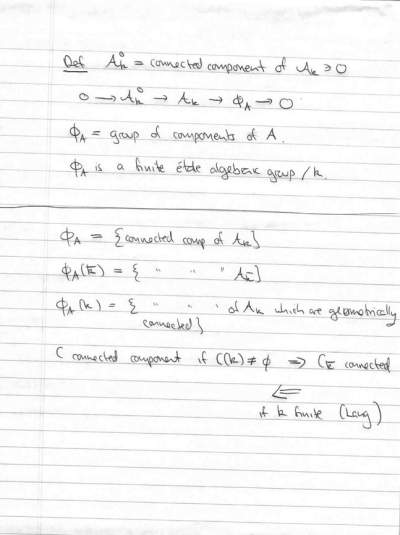 Def A_k^0 = connected component of A_k ∋ 0
0 → A_k^0 → A_k → Φ_A → 0
Φ_A = group of components of A.
Φ_A is a finite étale algebraic group / k.
Φ_A = {connected comp of A_k}
Φ_A(k̄) = { " " " A_k̄}
Φ_A(k) = { " " " of A_k which are geometrically
connected}
C connected component if C(k) ≠ φ ⇒ C_k̄ connected
⇐
if k finite (Lang)